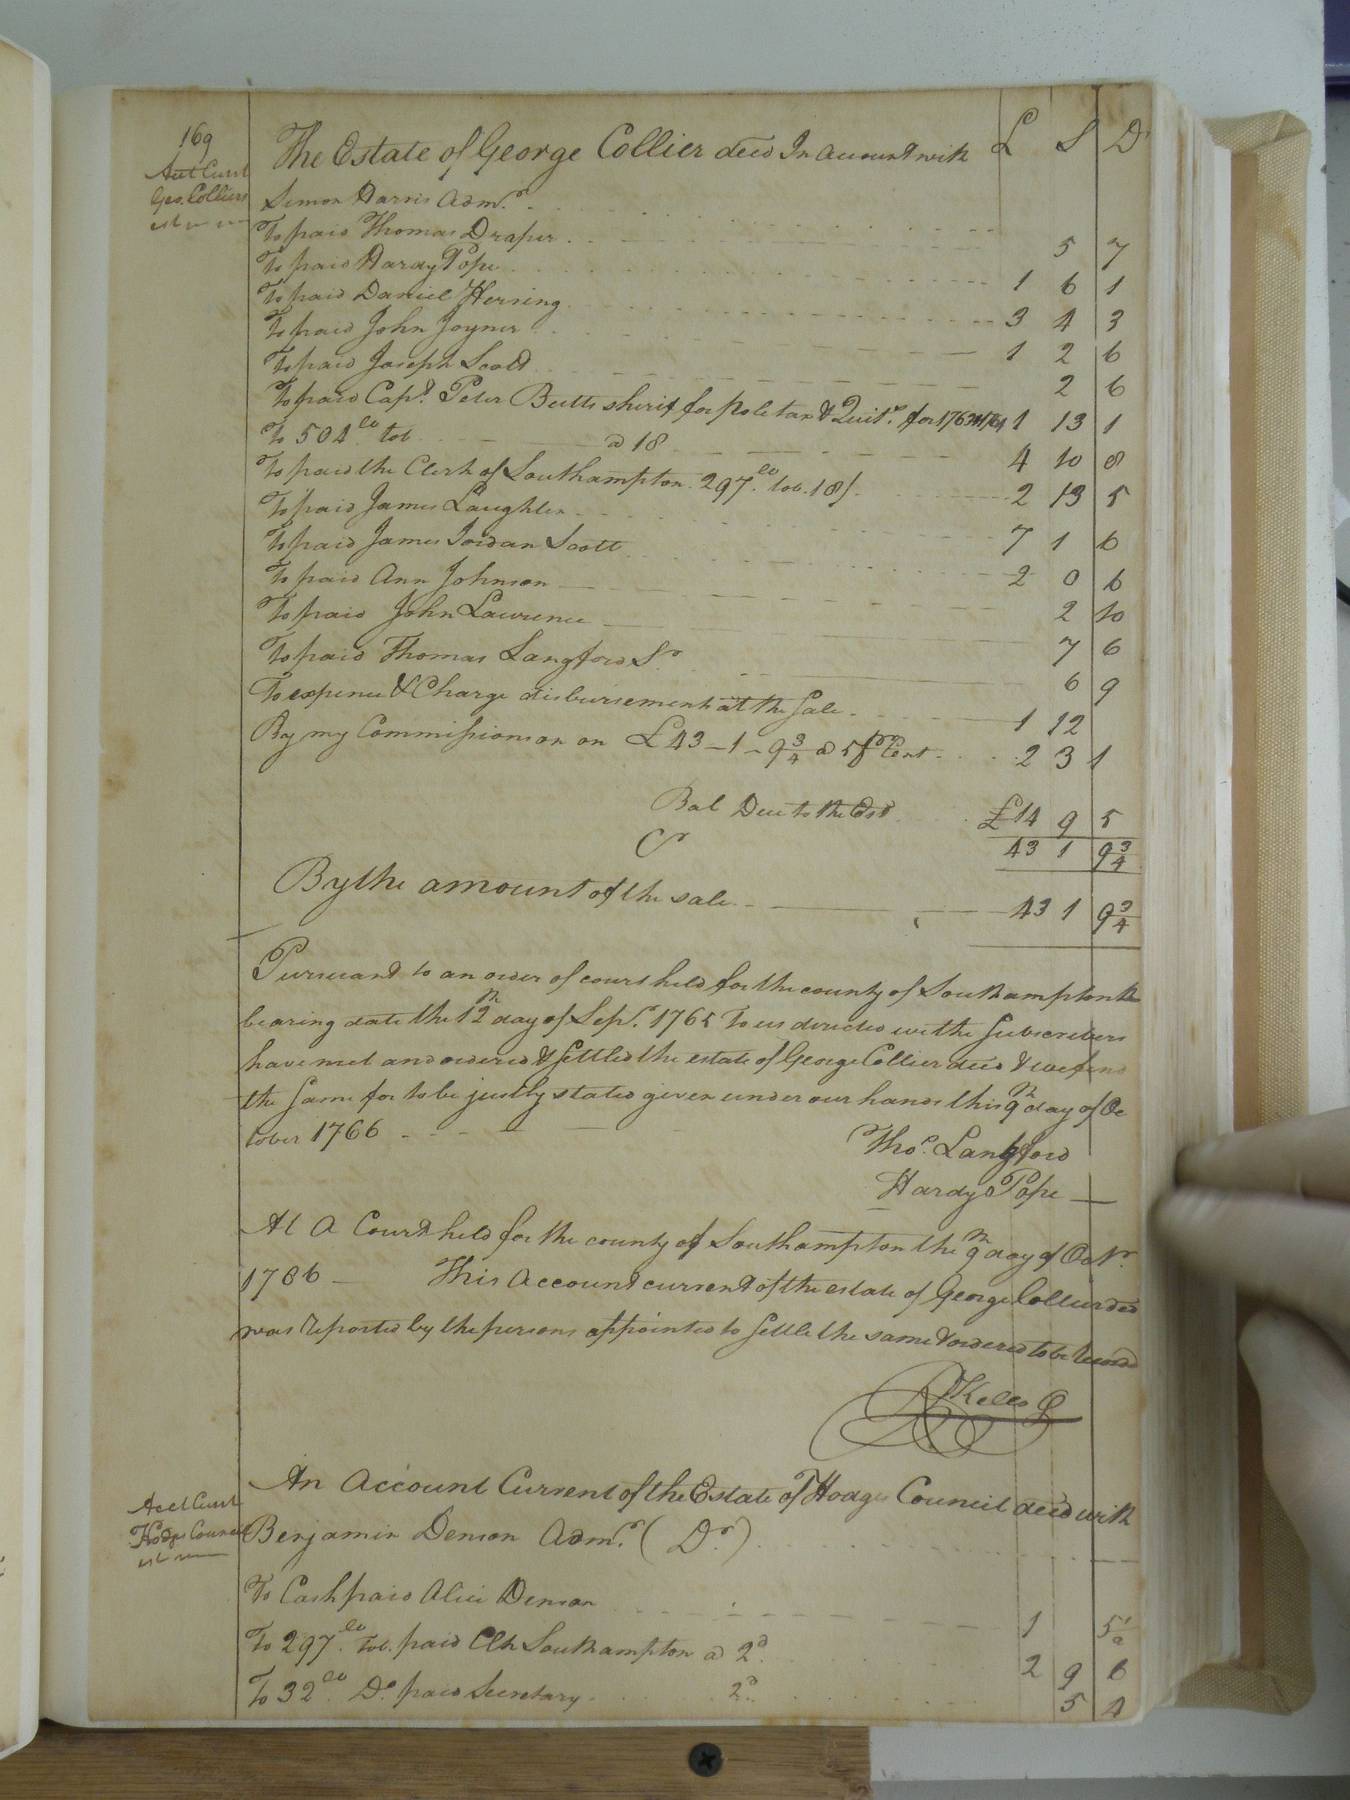 169
Acct Currt
Geo. Colliers
est
The Estate of George Collier decd In account with £ S D
Simon Harris Admr.
To paid Thomas Draper 5 7
To paid Hardy Pope 1 6 1
To paid Daniel Herring 3 4 3
To paid John Joyner 1 2 6
To paid Joseph Scott 2 6
To paid Capt. Peter Butts sherif for pole tax & Quits. for 1763 & 1764 1 13 1
To 504 lb tob a 18 4 10 8
To paid the Clerk of Southampton 297 lb tob. 18/. 2 13 5
To paid James Laughter 7 1 6
To paid James Jordan Scott 2 0 6
To paid Ann Johnson 2 10
To paid John Lawrence 7 6
To paid Thomas Langford Sr 6 9
To expence & Charge disbursement at the Sale 1 12
By my Commissions on on £43-1-9¾ a 5 pr Cent 2 3 1
Bal Due to the Est £14 9 5
Cr 43 1 9¾
By the amount of the sale 43 1 9¾
Pursuant to an order of court held for the county of Southampton
bearing date the 12th day of Sept. 1765 To us directed we the Subscribers
have met and ordered & Settled the estate of George Collier decd & we find
the Same for to be justly stated given under our hands this 9th day of Oc
tober 1766
Thos. Langford
Hardy Pope
At A Court held for the county of Southampton the 9th day of Octr.
1766 This Account current of the estate of George Collier decd
was Reported by the persons appointed to Settle the same & ordered to be Recorded
Kello
An Account Current of the Estate of Hodges Council decd with
Acct Currt
Hodges Council
est
Benjamin Denson Admr. (Dr.)
To Cash paid Alice Denson 1 5½
To 297 lb Tob. paid Clk Southampton a 2d. 2 9 6
To 32 lb. Do. paid Secretary 2d. 5 4